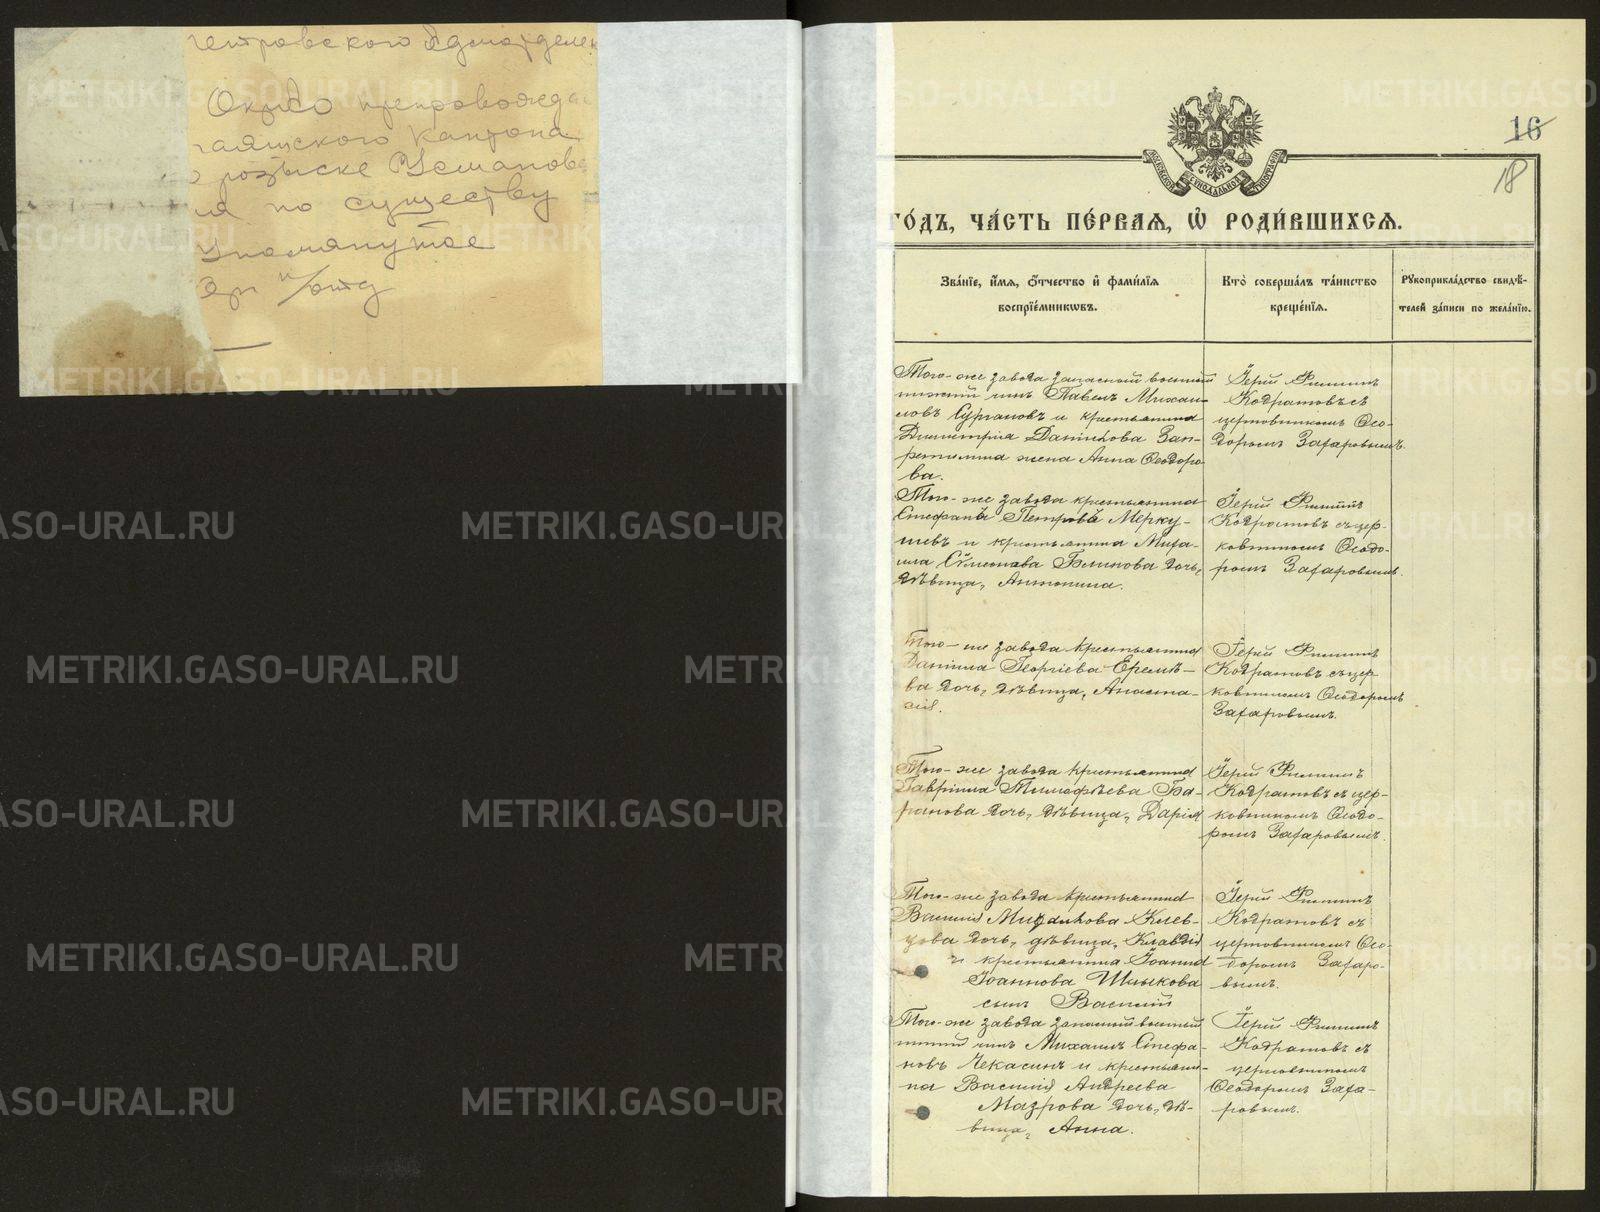 Адмотделен
Окрсо препровожда
кантона
розыске Усманова
по существу
Упомянутое
16
18
МОСКОВСКОЙ СѴНОДАЛЬНОЙ ТИПОГРАФІИ
ГОДЪ, ЧАСТЬ ПЕРВАЯ, Ѡ РОДИВШИХСЯ.
Званіе, имя, ѻтчество и фамилія
воспріемникѡвъ.
Кто совершалъ таинство
крещенія.
Рукоприкладство свидѣ-
телей записи по желанію.
Того-же завода запасный военный
нижній чинъ Павелъ Михаи-
ловъ Сургановъ и крестьянина
Димитрія Данилова Зап-
ретилина жена Анна Ѳеодоро
ва.
Іерей Филиппъ
Кодратовъ съ
церковникомъ Ѳео-
доромъ Захаровымъ.
Того-же завода крестьянинъ
Стефанъ Петровъ Мерку-
шевъ и крестьянина Миха-
ила Сѵмеонова Беликова дочь,
дѣвица, Антонина.
Іерей Филиппъ
Кодратовъ съ цер-
ковникомъ Ѳеодо-
ромъ Захаровымъ.
Того-же завода крестьянина
Даніила Георгіева Еремѣ-
ва дочь, дѣвица, Анаста-
сія.
Іерей Филиппъ
Кодратовъ съ цер
ковникомъ Ѳеодоромъ
Захаровымъ.
Того-же завода крестьянина
Гавріила Тимофѣева Ба-
ранова дочь, дѣвица, Дарія
Іерей Филиппъ
Кодратовъ съ цер-
ковникомъ Ѳеодо-
ромъ Захаровымъ.
Того-же завода крестьянина
Василія Михаилова Клев-
цова дочь, дѣвица, Клавдія
и крестьянина Іоанна
Іоаннова Шлыкова
сынъ Василій
Іерей Филиппъ
Кодратовъ съ
церковникомъ Ѳео-
доромъ Захаро-
вымъ.
Того-же завода запасный военный
нижній чинъ Михаилъ Стефа-
новъ Чекасинъ и крестьяни-
на Василія Андреева
Мазрова дочь, дѣ-
вица, Анна.
Іерей Филиппъ
Кодратовъ съ
церковникомъ
Ѳеодоромъ Заха-
ровымъ.
METRIKI.GASO-URAL.RU